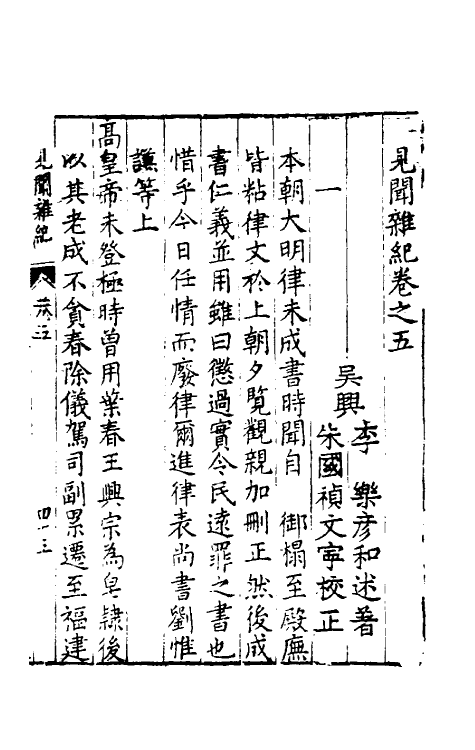 見聞雜紀卷之五
吳興
李　樂彥和述著
朱國禎文寧校正
一
本朝大明律未成書時聞自　御榻至殿廡
皆粘律文於上朝夕覽觀親加刪正然後成
書仁義並用雖曰懲過實令民遠罪之書也
惜乎今日任情而廢律爾進律表尚書劉惟
謙等上
高皇帝未登極時曾用葉春王興宗為皂隸後
以其老成不貪春除儀駕司副累遷至福建
見聞雜紀
卷五
四十三